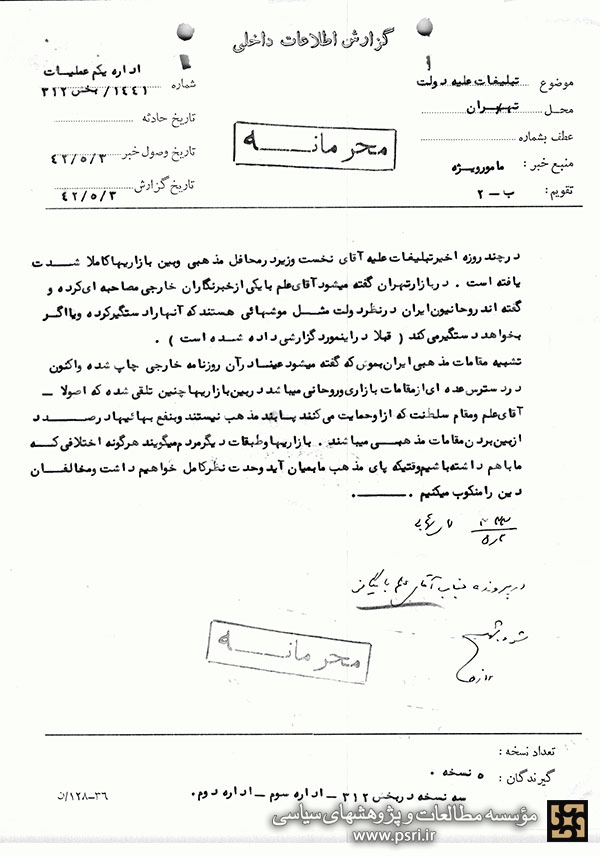 گزارش اطلاعات داخلی
موضوع تبلیغات علیه دولت
محل تهران
عطف بشماره
منبع خبر : مامورویژه
تقویم : ب - ۲
محرمانه
اداره یکم عملیات
شماره ۱۴۴۱/ بخش ۳۱۲
تاریخ حادثه
تاریخ وصول خبر ۴۲/۵/۳
تاریخ گزارش ۴۲/۵/۳
درچند روزه اخیر تبلیغات علیه آقای نخست وزیر در محافل مذهبی وبین بازاریها کاملا شدت
یافته است . در بازار تهران گفته میشود آقای علم با یکی از خبرنگاران خارجی مصاحبه ای کرده و
گفته اند روحانیون ایران در نظر دولت مثل موشهائی هستند که آنها را دستگیر کرده ویا اگر
بخواهد دستگیر می کند ( قبلا در اینمورد گزارشی داده شده است ) .
تشبیه مقامات مذهبی ایران بموش که گفته میشود عینا در آن روزنامه خارجی چاپ شده واکنون
در دسترس عده ای از مقامات بازاری وروحانی میباشد در بین بازاریها چنین تلقی شده که اصولا -
آقای علم ومقام سلطنت که از او حمایت می کنند پسابند مذهب نیستند وبنفع بهائیها در صدد
ازبین بردن مقامات مذهبی میباشند . بازاریها وطبقات دیگر مردم میگویند هرگونه اختلافی که
ما باهم داشته باشیم وقتیکه پای مذهب ما بمیان آید وحدت نظر کامل خواهیم داشت ومخالفان
دین را منکوب میکنیم .
در پرونده جناب آقای علم بایگانی
شود
محرمانه
تعداد نسخه :
گیرندگان : ۵ نسخه .
سه نسخه در بخش ۳۱۲ - اداره سوم - اداره دوم .
۱۲۸-۳۶/ن
مؤسسه مطالعات و پژوهشهای سیاسی
www.psri.ir